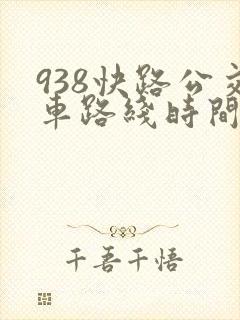 938快路公交
車路綫時間
千吾千悟